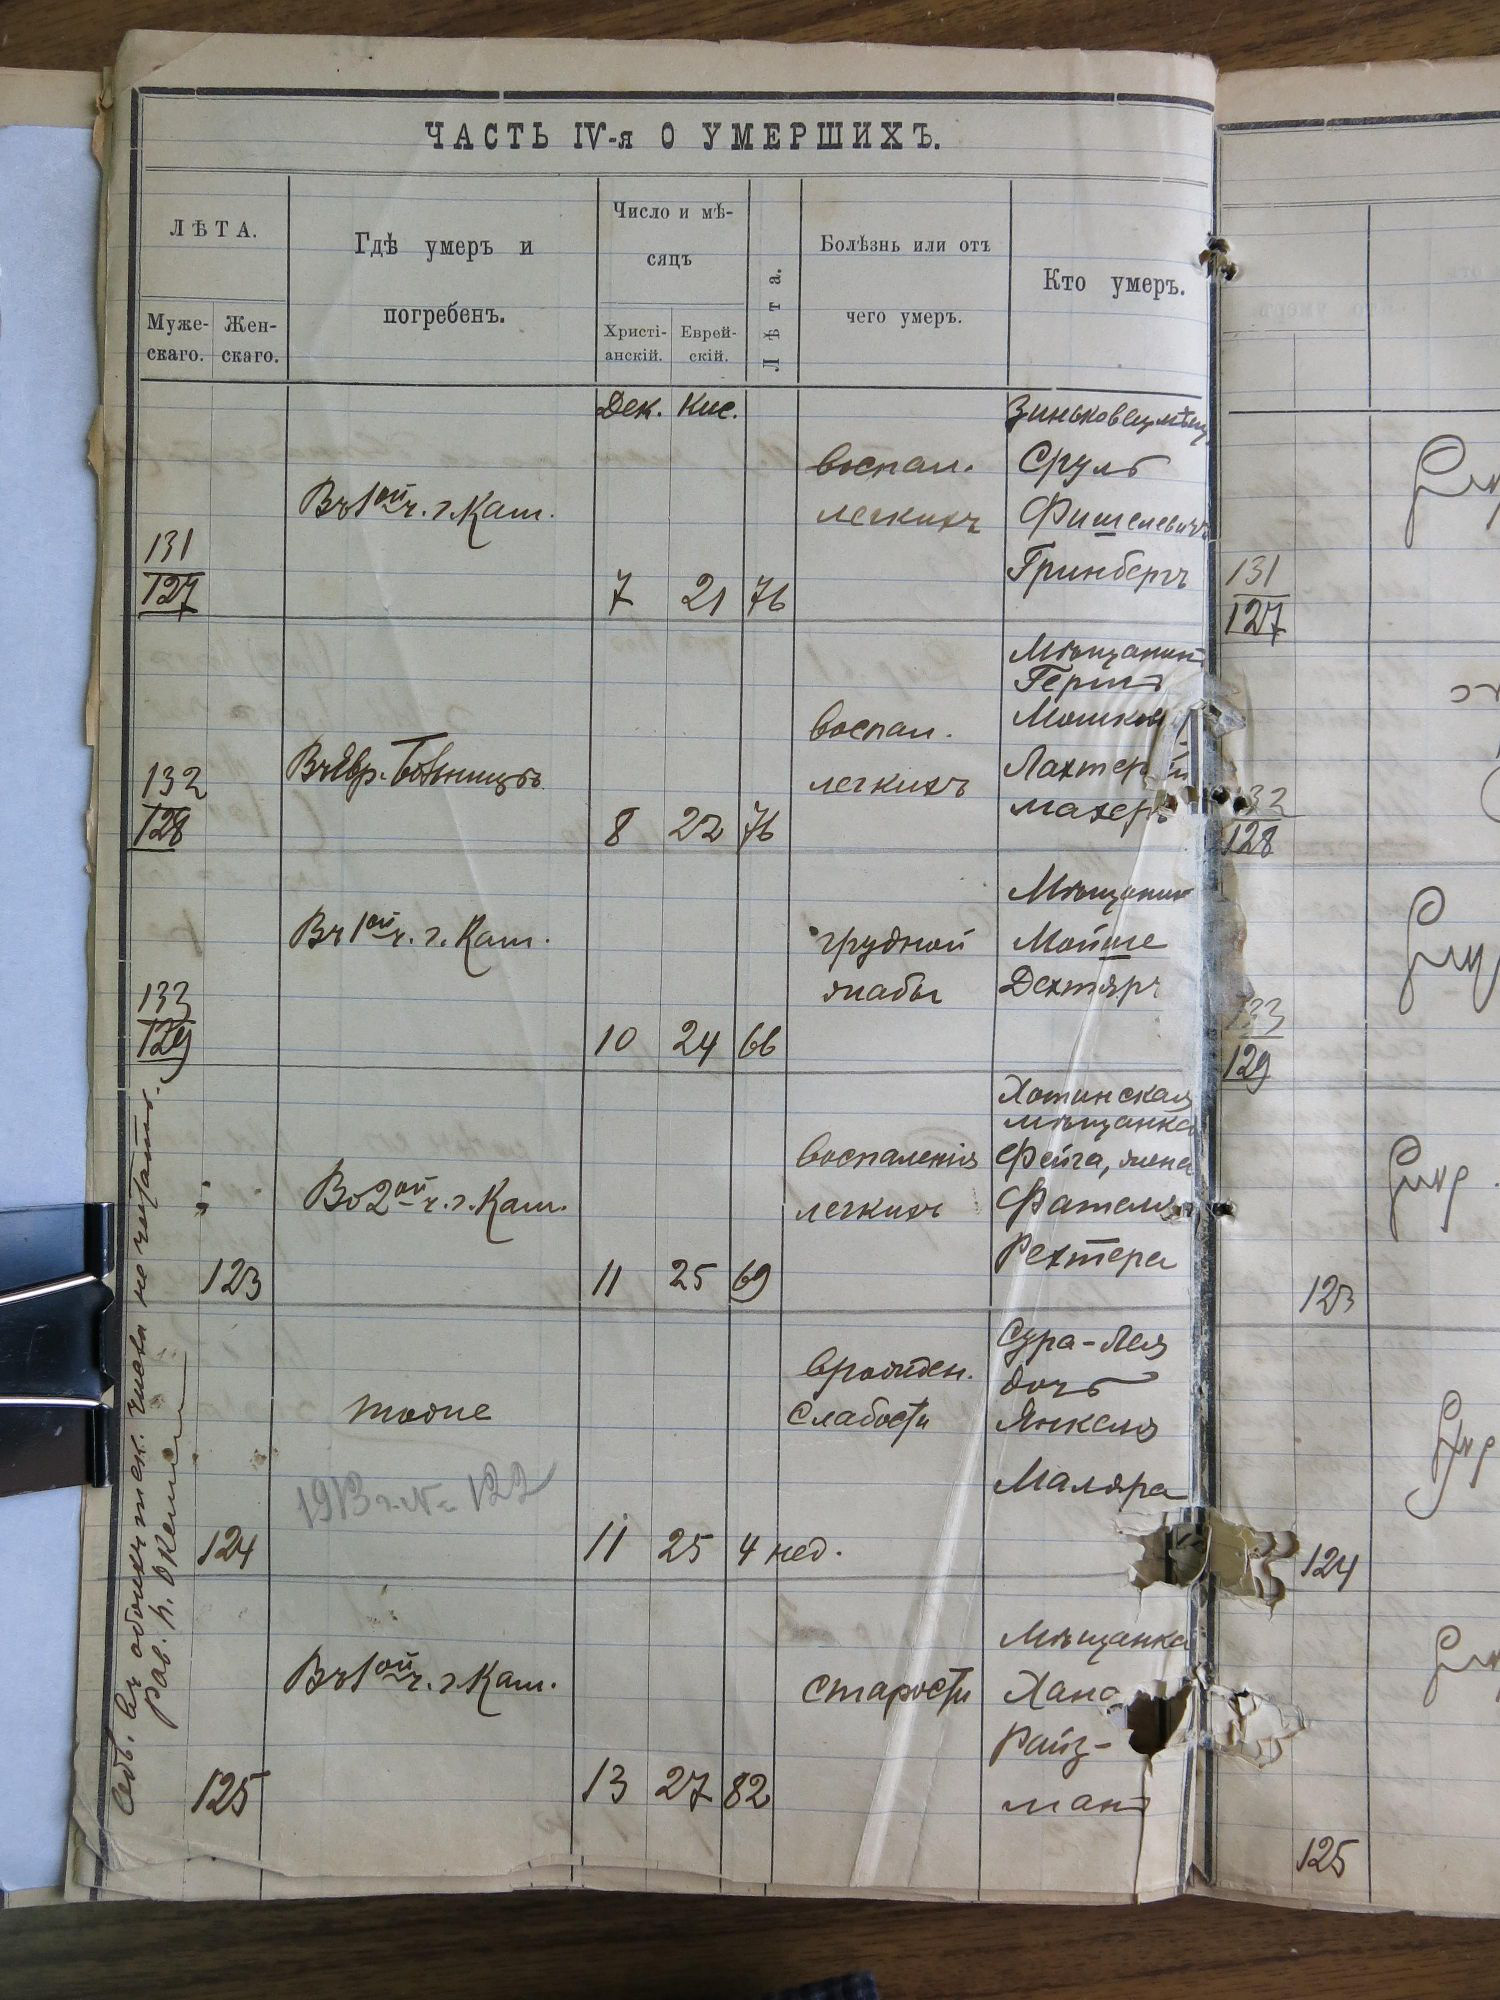 ЧАСТЬ IV-я О УМЕРШИХЪ.
ЛѢТА.
Муже-
скаго.
Жен-
скаго.
Гдѣ умеръ и
погребенъ.
Число и мѣ-
сяцъ
Христі-
анскій.
Еврей-
скій.
Лѣта.
Болѣзнь или отъ
чего умеръ.
Кто умеръ.
Дек. Кис.
131
127
Въ 1ой ч. г. Кам.
7 21 76
воспал.
легкихъ
Зиньковец. мѣщ.
Сруль
Фишелевичъ
Гринбергъ
132
128
Въ Евр. больницѣ
8 22 76
воспал.
легкихъ
Мѣщанинъ
Гершъ
Мошков
Лахтер
махеръ
133
129
Въ 1ой ч. г. Кам.
10 24 66
грудной
жабы
Мѣщанин
Мойше
Дехтяръ
123
Во 2ой ч. г. Кам.
11 25 69
воспаленія
легкихъ
Хотинская
мѣщанка
Фейга, жена
Фателя
Рехтера
124
тоже
1913 г. № 122
11 25 4 нед.
врожден.
слабости
Сура-Лея
дочь
Янкеля
Маляра
125
Въ 1ой ч. г. Кам.
13 27 82
старости
Мѣщанка
Хана
Райз-
манъ
не читать.
рав.
131
127
132
128
133
129
123
124
125